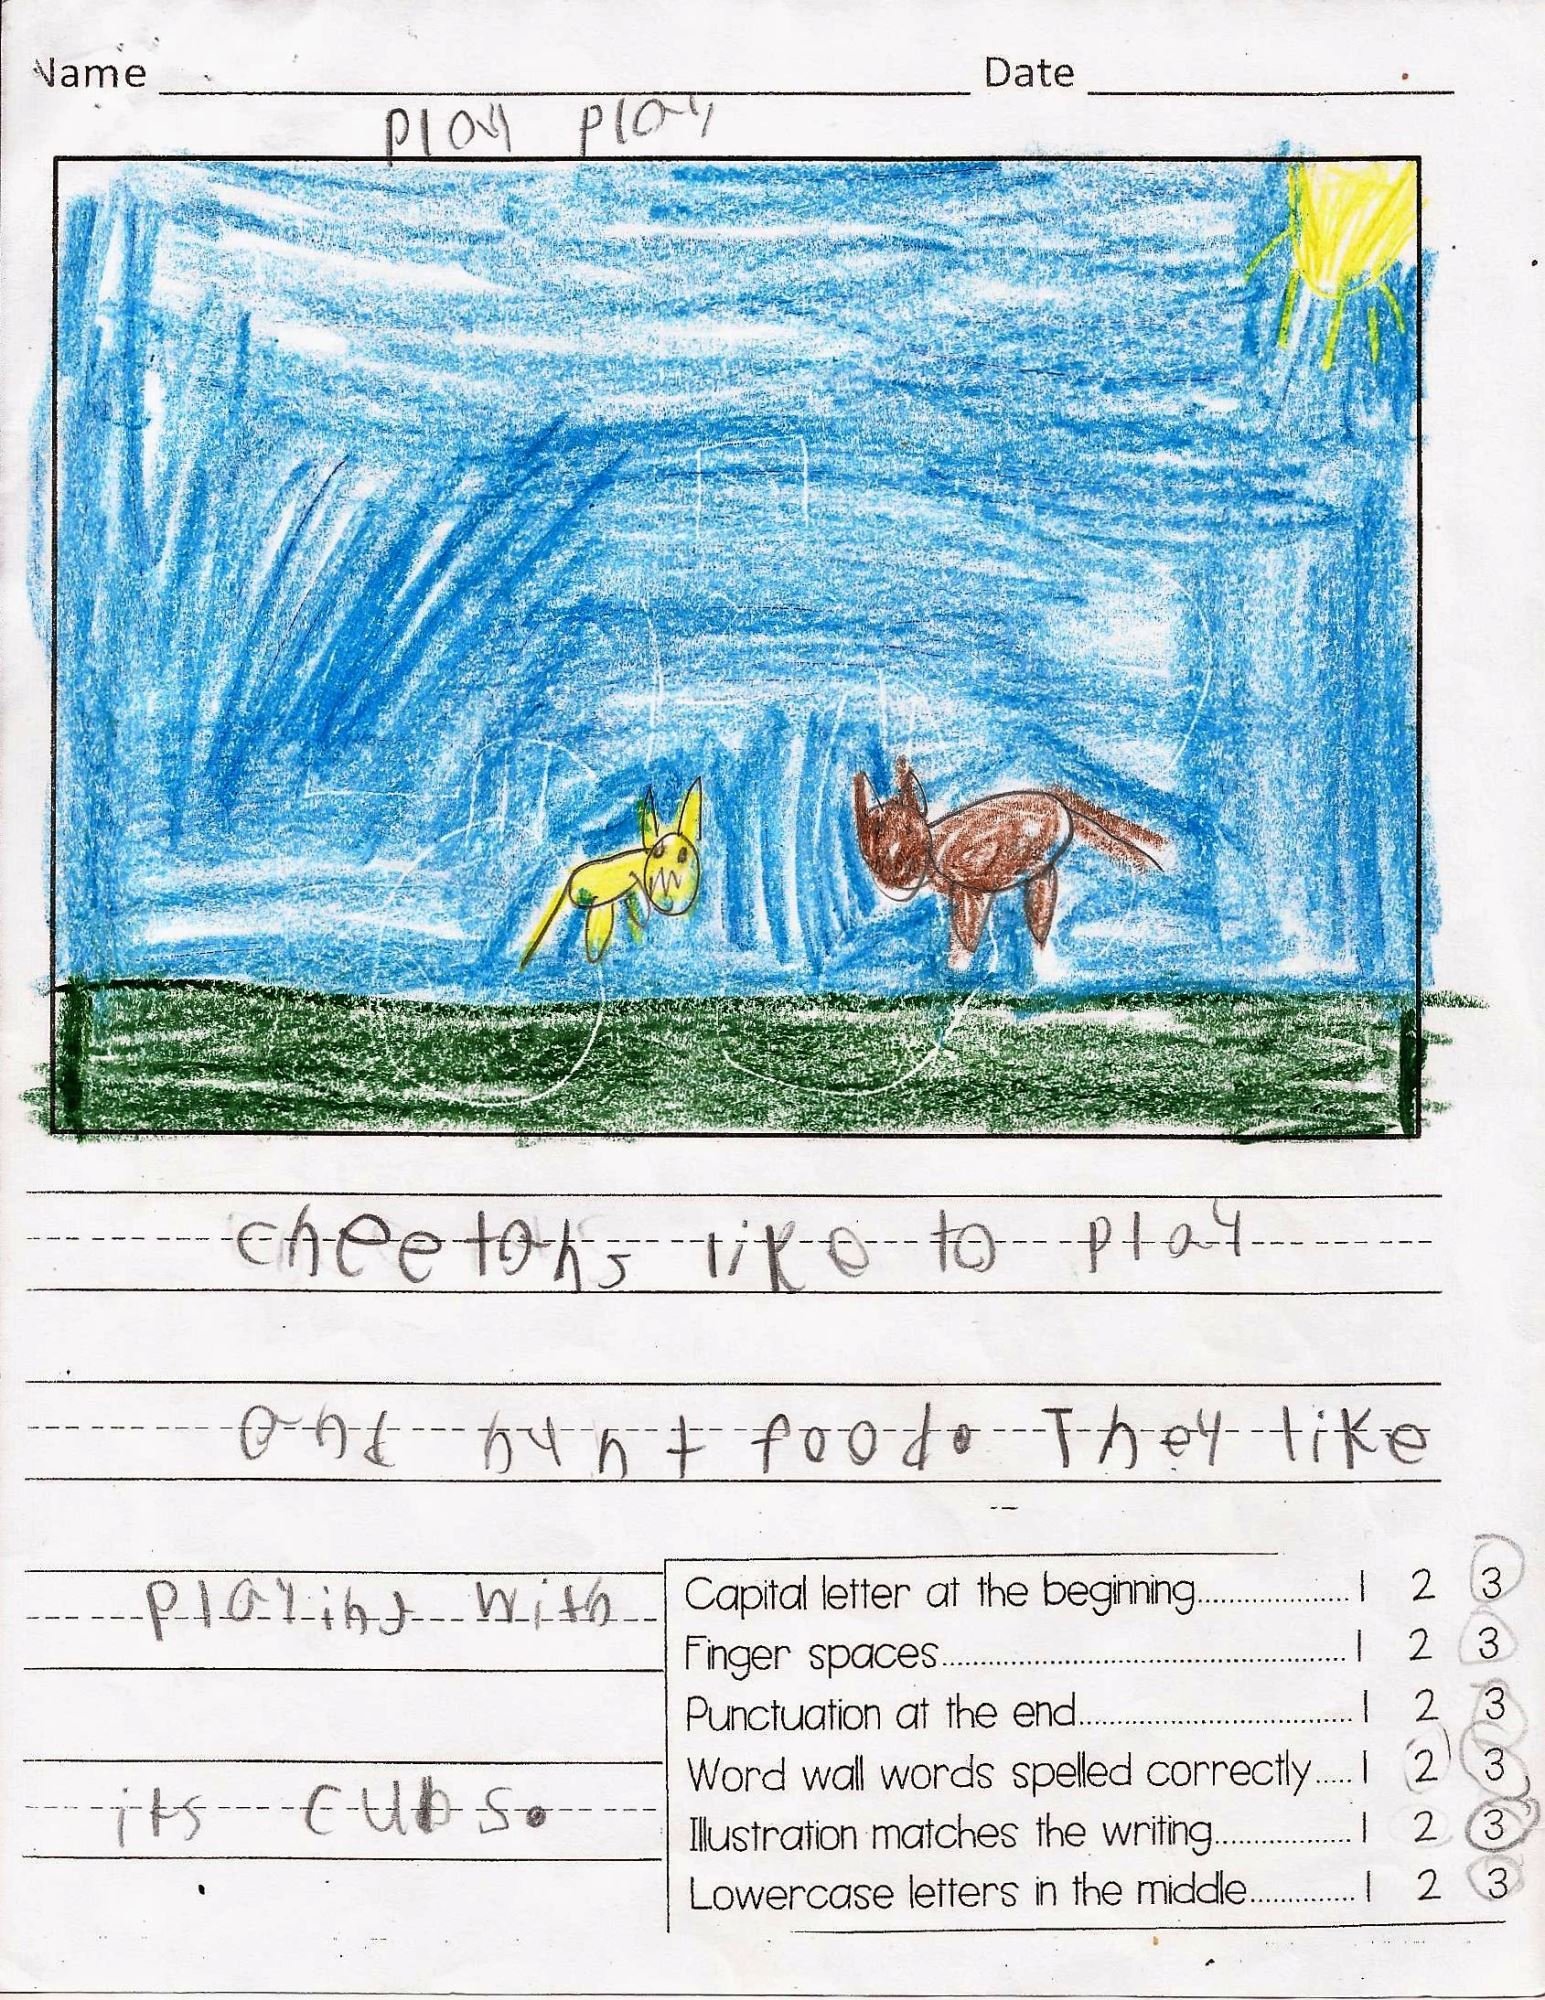 Name Date
play play
cheetahs like to play
and hunt food. They like
playing with
its cubs.
Capital letter at the beginning 1 2 3
Finger spaces 1 2 3
Punctuation at the end 1 2 3
Word wall words spelled correctly 1 2 3
Illustration matches the writing 1 2 3
Lowercase letters in the middle 1 2 3